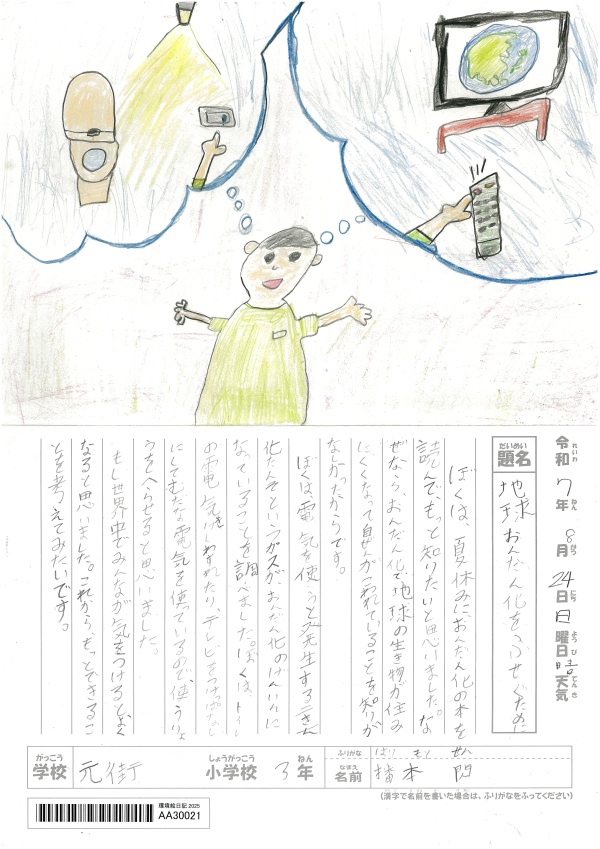 令和7年8月24日日曜日晴天気
れいわ ねん がつ にち ようび てんき
だいめい
題名
地球おんだん化をふせぐため
ぼくは、夏休みにおんだん化の本を
読んで、もっと知りたいと思いました。な
ぜなら、おんだん化で、地球の生き物が住み
にくくなって自ぜんがこわれていることを知りが
なしかったからです。
ぼくは、電気を使うと発生する二さんか
化たんそというガスが、おんだん化のげんいんに
なっていることを調べました。ぼくは、トイレ
の電気けしわすれたり、テレビをつけっぱなし
にしてむだな電気を使っているので、使うりょ
うをへらせると思いました。
もし世界中でみんなが気をつけるとよく
なると思いました。これから、もっとできるこ
とを考えてみたいです。
がっこう
学校
元街
しょうがっこう
小学校
3
ねん
年
ふりがな
なまえ
名前
本
(漢字で名前を書いた場合は、ふりがなをふってください)
環境絵日記 2025
AA30021